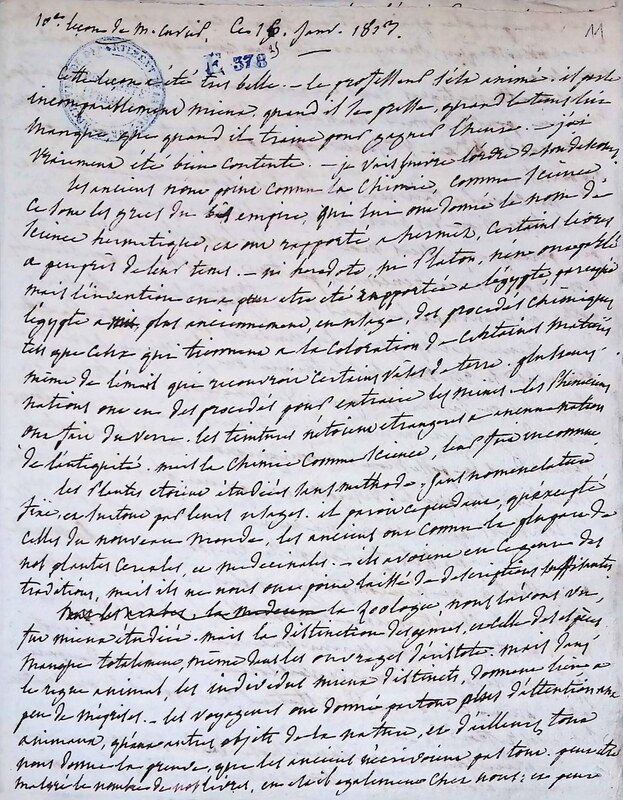 10e leçon de m. Cuvier. Ce 16. Janv. 1813.
11
E 378
25
cette leçon a été très belle. – le professeur s'est animé. il parle
incomparablement mieux, quand il se presse, quand le tems lui
manque que quand il traine pour gagner l'heure. – j'ai
vraiment été bien contente. – je vais suivre l'ordre de son discours
les anciens n'ont point connu la Chimie, comme science
ce sont les grecs du bas empire, qui lui ont donné le nom de
science hermetique, et ont rapporté a hermès, certains livres
a peu près de leur tems. – ni herodote, ni Platon, n'en ont parlé
mais l'invention en a peut etre été rapportée a l'égypte parceque
l'égypte a plus anciennement, en usage, des procédés chimiques
tels que ceux qui tiennent a la coloration de certaines matières
même de l'émail qui recouvroit certains vases de terre. plusieurs
nations ont eu des procedés pour extraire les mines. les Phéniciens
ont fait du verre. les teintures n'étoient etrangères a aucune nation
de l'antiquité. mais la Chimie comme science, leur fut inconnue
les Plantes etoient etudiées sans methode, sans nomenclature
fixe, et surtout par leurs usages. il paroit cependant, qu'excepté
celles du nouveau monde, les anciens ont connu la plupart de
nos plantes cereales, et medecinales. – ils avoient en ce genre des
traditions, mais ils ne nous ont point laissé de descriptions suffisantes
la Zoologie, nous l'avons vu,
fut mieux etudiée. mais la distinction des genres, et celle des espèces
manque totalement, même dans les ouvrages d'aristote. mais dans
le regne animal, les individus mieux distincts, donnent lieu a
peu de méprises. – les voyageurs ont donné partout plus d'attention aux
animaux, qu'aux autres objets de la nature, et d'ailleurs tout
nous donne la preuve, que les anciens n'écrivoient pas tout. peut etre
malgré le nombre de nos livres, en est-il également chez nous; et peut